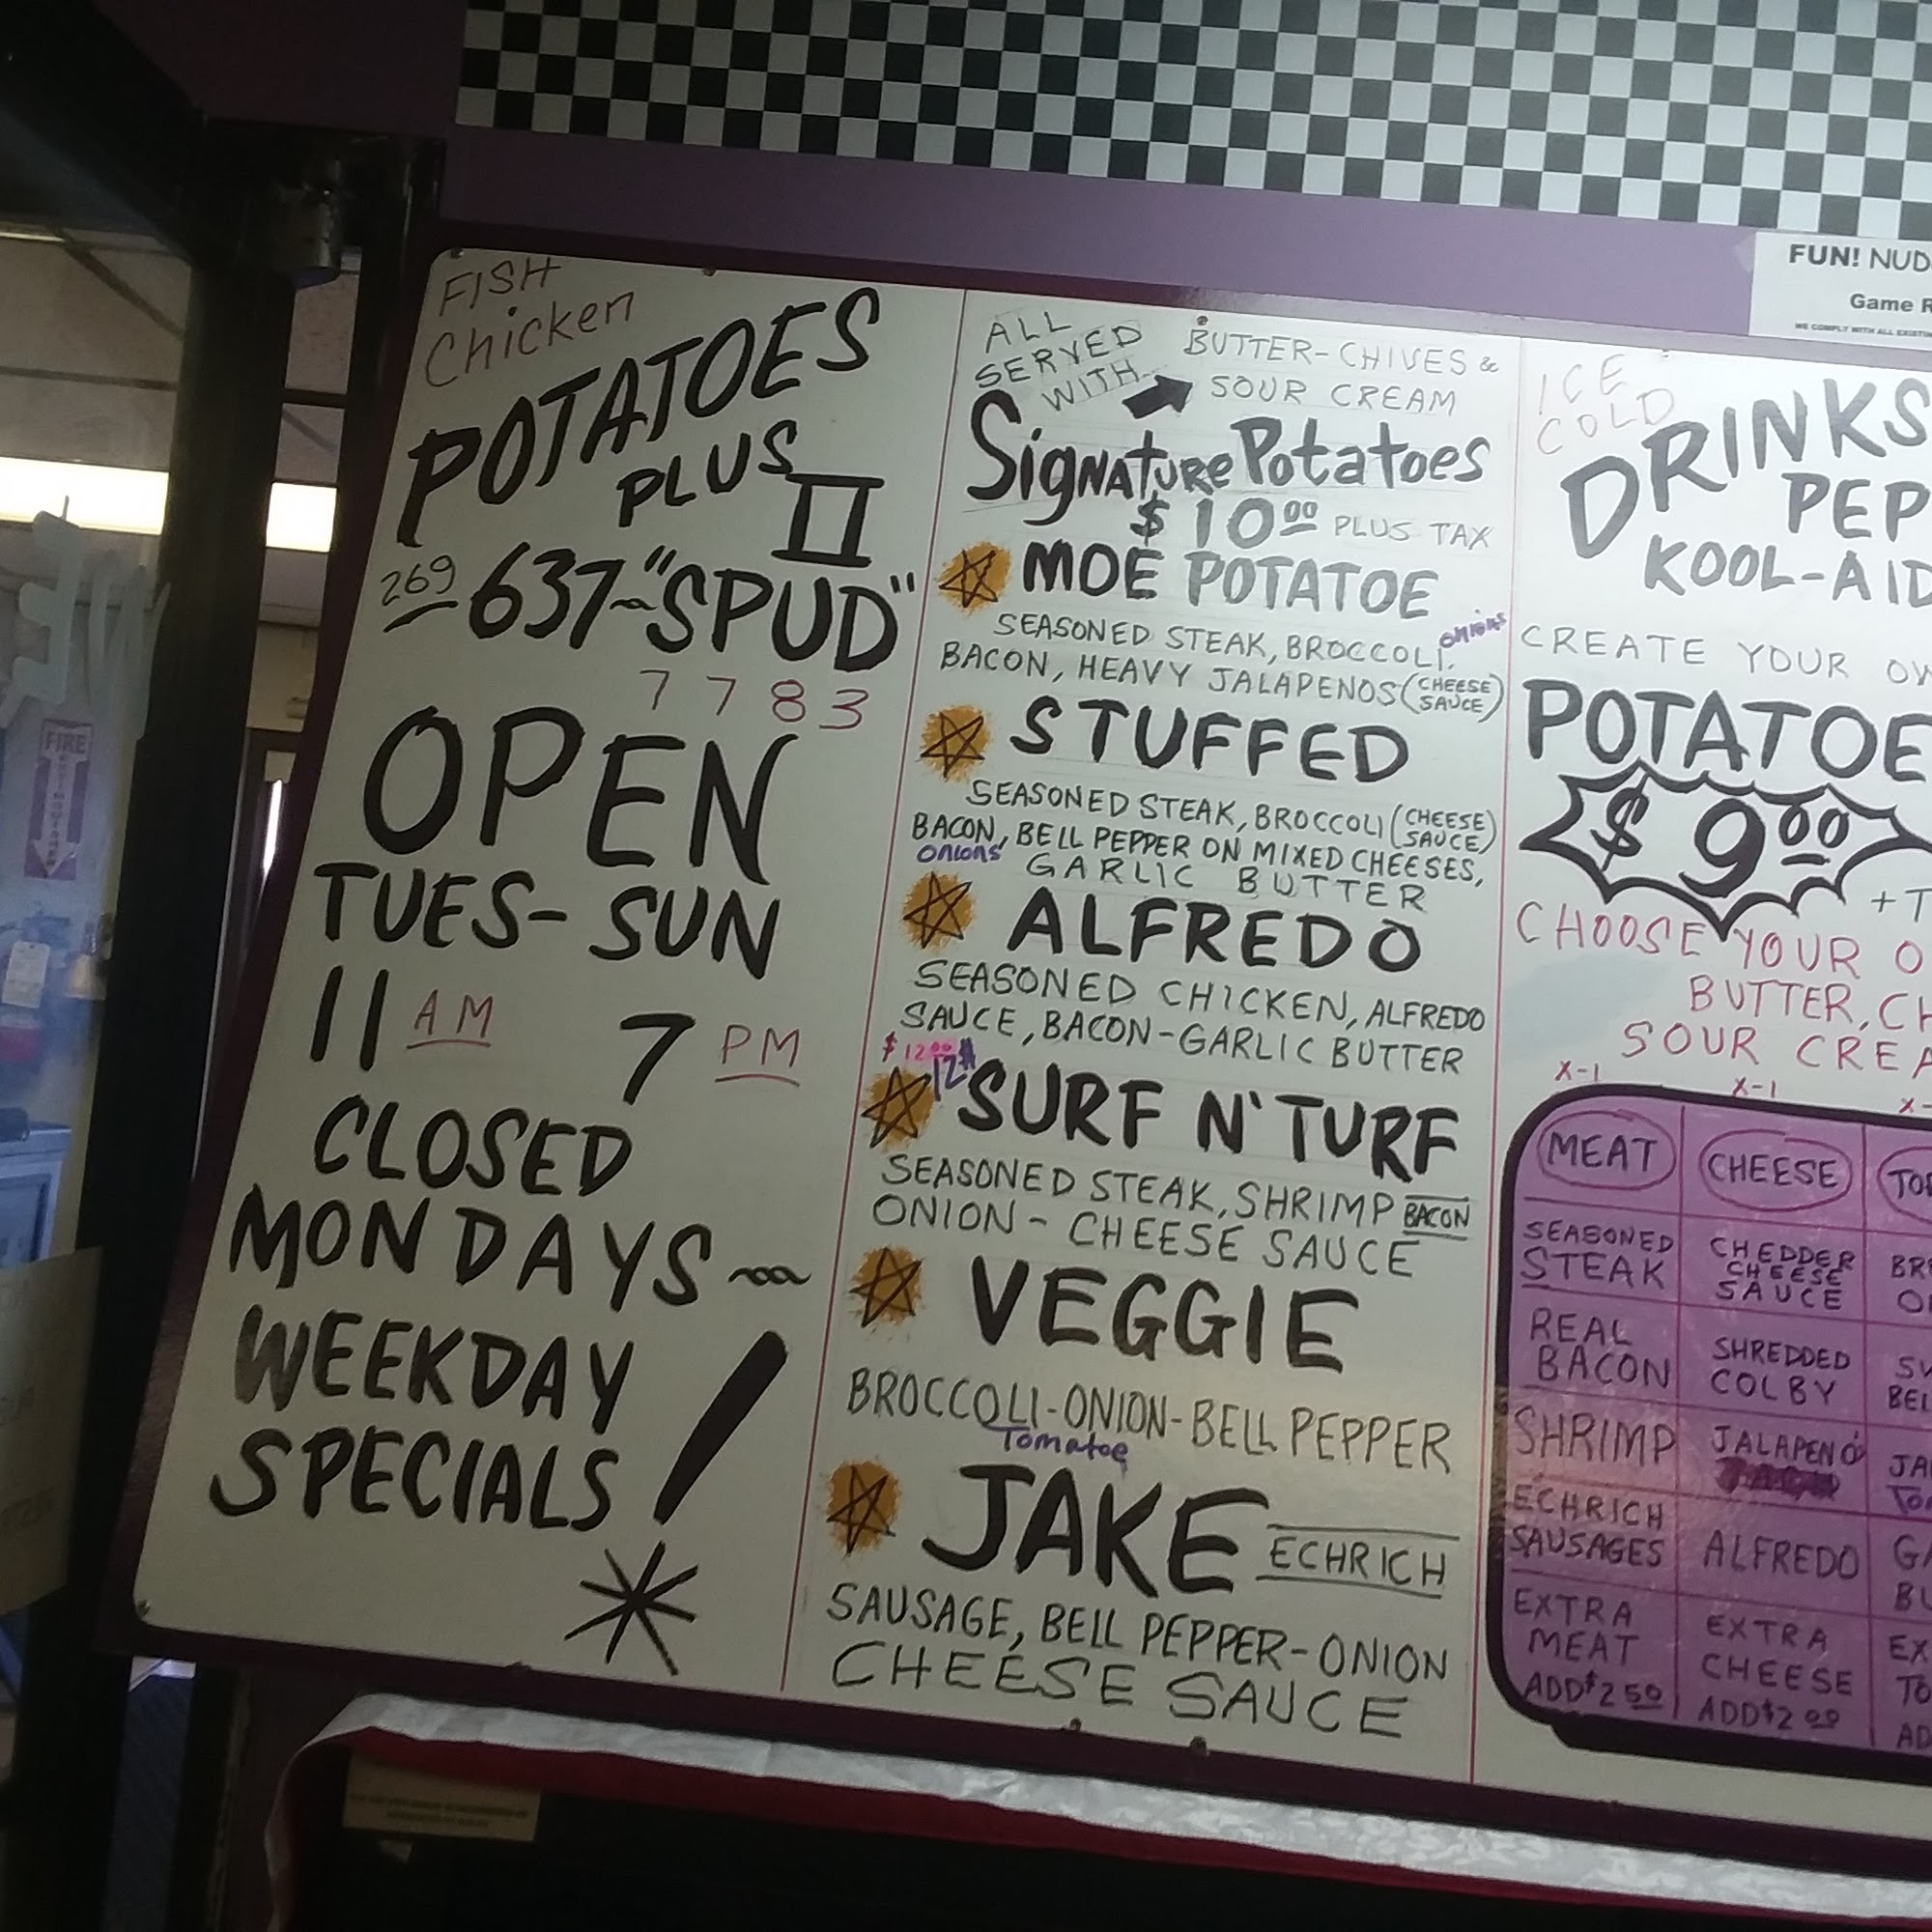 FUN! NUD
Game R
WE COMPLY WITH ALL EXISTIN
FISH
Chicken
POTATOES
PLUS
II
269 637~"SPUD"
7783
OPEN
TUES-SUN
11 AM 7 PM
CLOSED
MONDAYS~
WEEKDAY
SPECIALS!
*
ALL
SERVED
WITH
BUTTER-CHIVES &
SOUR CREAM
Signature Potatoes
$10.00 PLUS TAX
MOE POTATOE
SEASONED STEAK, BROCCOLI, onions
BACON, HEAVY JALAPENOS (CHEESE SAUCE)
STUFFED
SEASONED STEAK, BROCCOLI (CHEESE SAUCE)
BACON, BELL PEPPER ON MIXED CHEESES,
Onions
GARLIC BUTTER
ALFREDO
SEASONED CHICKEN, ALFREDO
SAUCE, BACON-GARLIC BUTTER
$12.00
SURF N' TURF
SEASONED STEAK, SHRIMP BACON
ONION - CHEESE SAUCE
VEGGIE
BROCCOLI-ONION-BELL PEPPER
Tomatoe
JAKE ECHRICH
SAUSAGE, BELL PEPPER-ONION
CHEESE SAUCE
ICE
COLD
DRINKS
PEP
KOOL-AID
CREATE YOUR OW
POTATOE
$9.00
+T
CHOOSE YOUR O
BUTTER, CH
SOUR CREA
X-1 X-1 X-
MEAT CHEESE TO
SEASONED STEAK
CHEDDER CHEESE SAUCE
BR
REAL BACON
SHREDDED COLBY
BEL
SHRIMP
JALAPENO
JA
TO
ECHRICH SAUSAGES
ALFREDO
GA
BU
EXTRA MEAT ADD $2.50
EXTRA CHEESE ADD $2.00
EX
TO
AD
FIRE
EXTINGUISHER